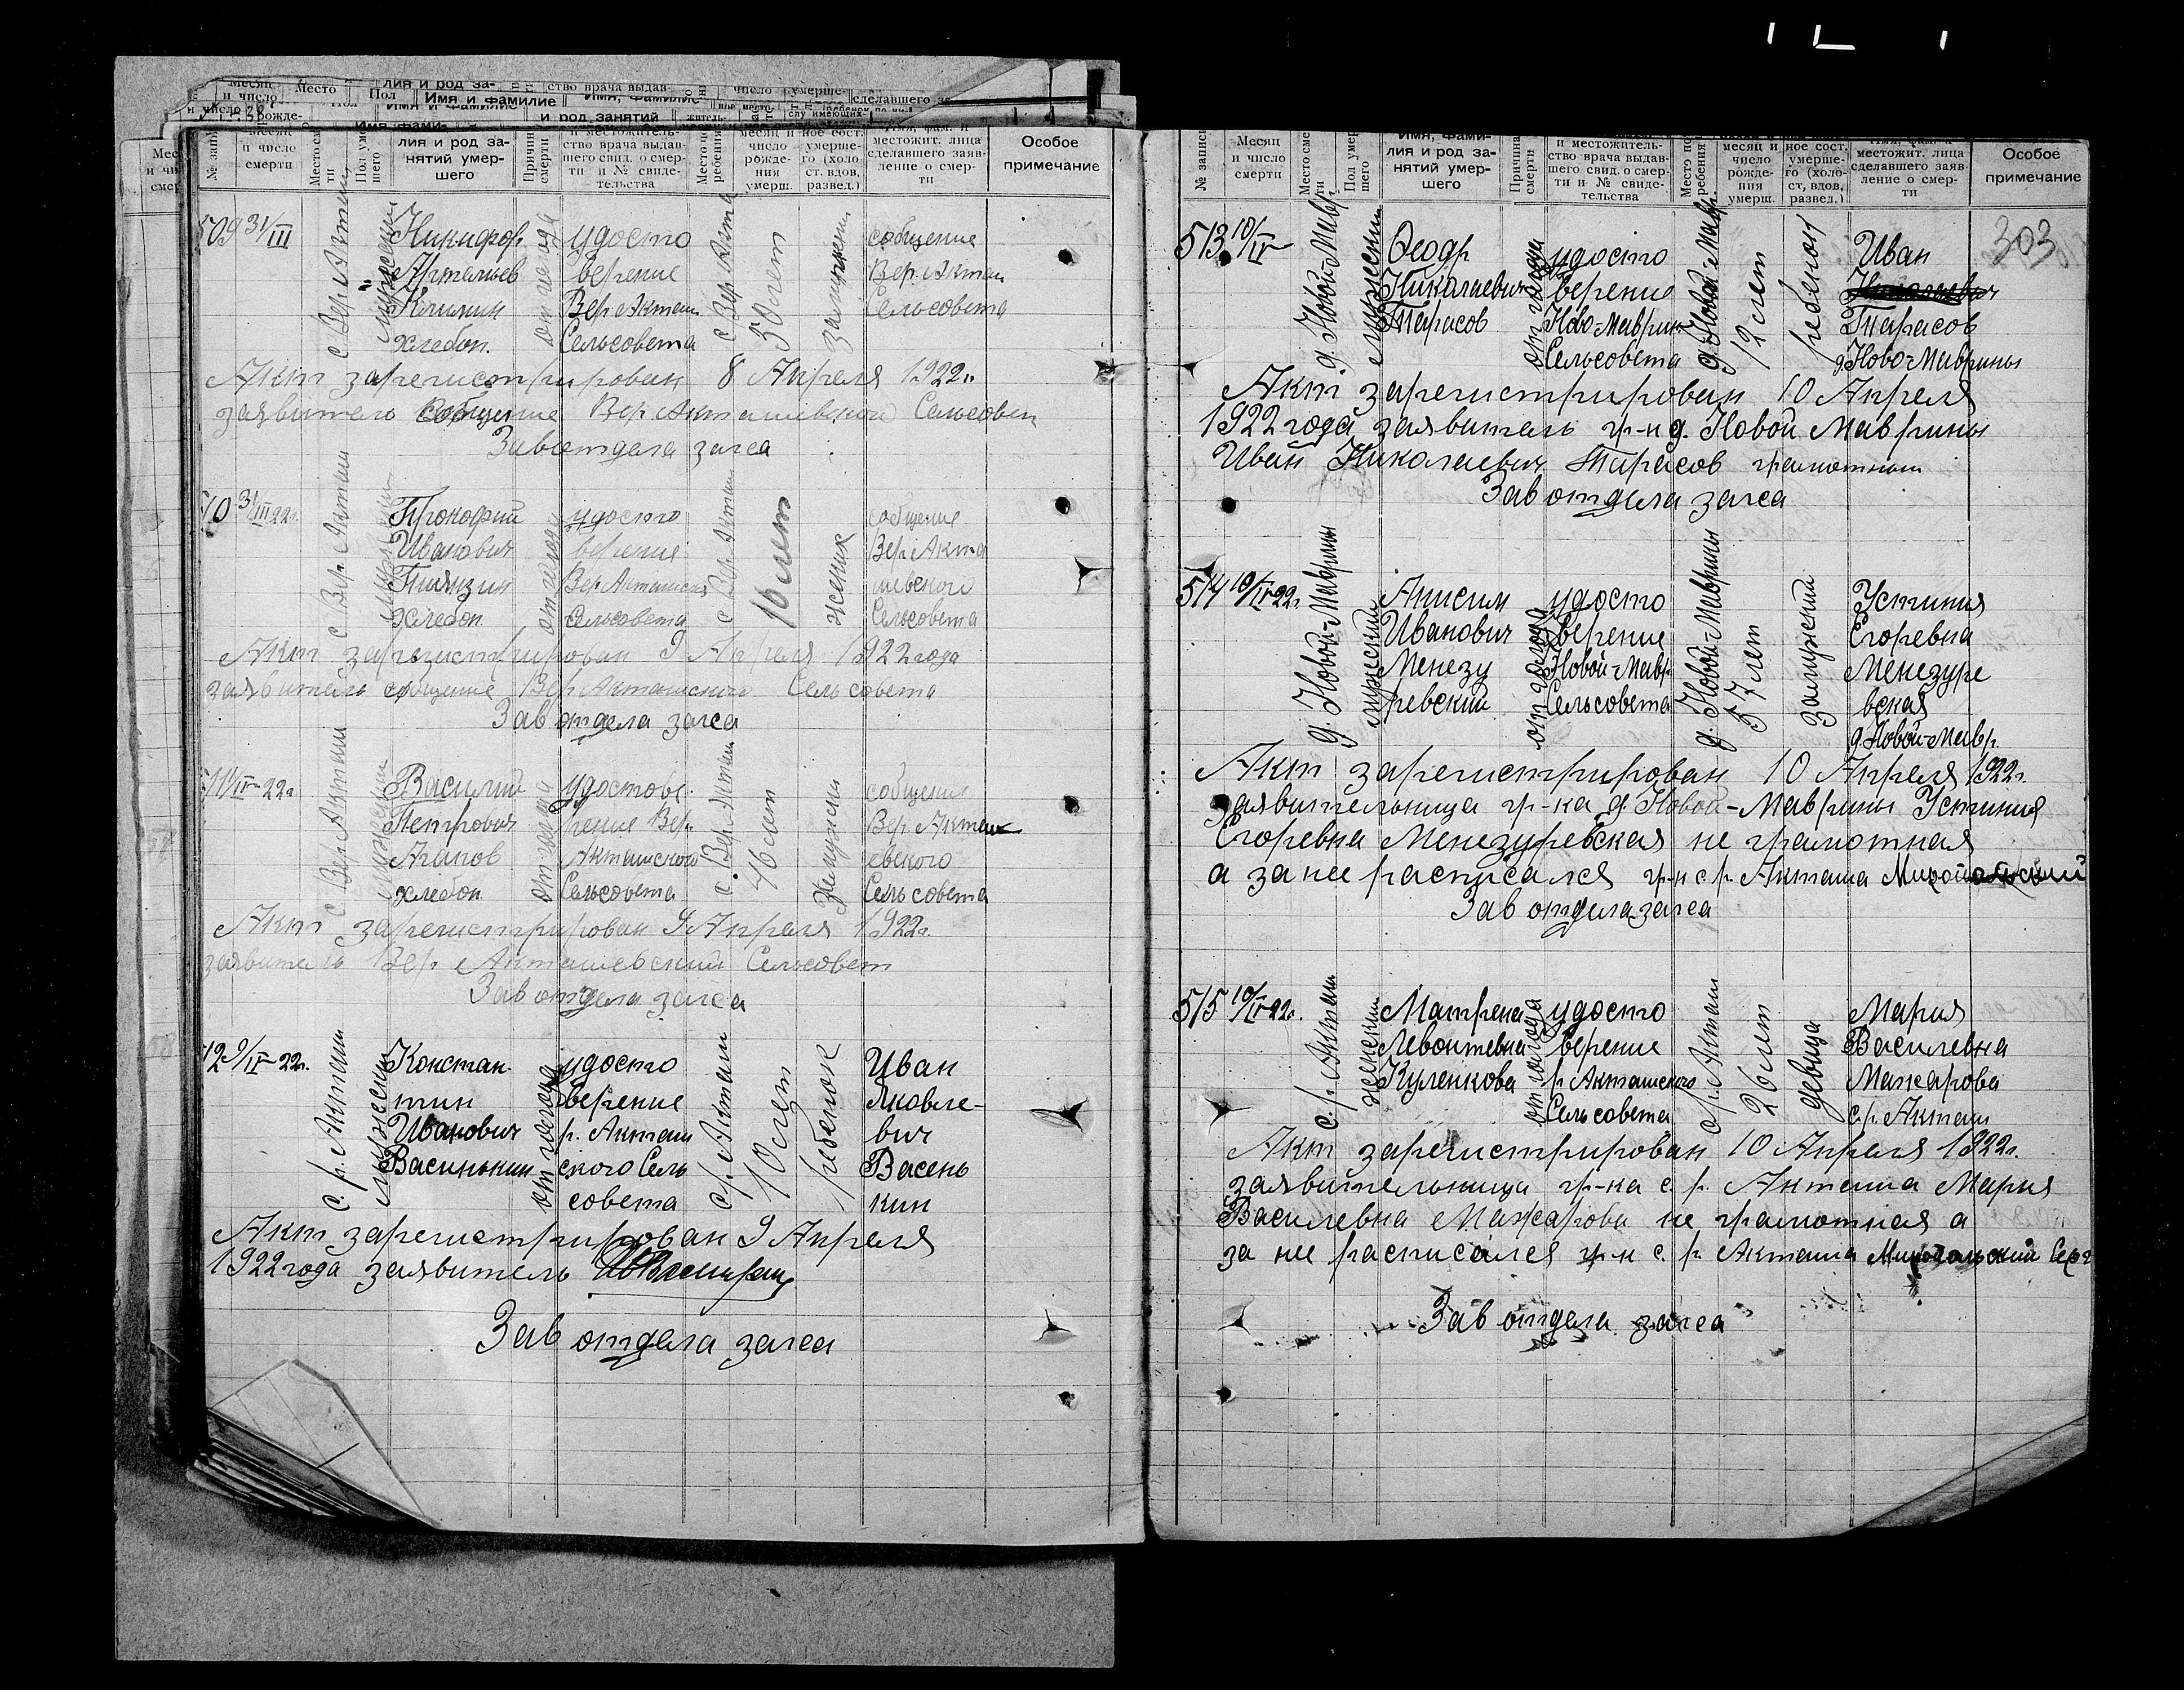 Месяц и число смерти
Место
Пол
Имя и фамилие
и род занятий
№ запи
Месяц и число смерти
Место сме ти
Пол уме шего
лия и род занятий умершего
Причина смерти
и местожительство врача выдавшего свид. о смерти и № свидетельства
месяц и число рождения умерш.
ное сост. умершего (холост. вдов, развед.)
местожит. лица сделавшего заявление о смерти
Особое примечание
509 31/III
с Вер Акташ
мужеский
Никифор
Клинин
хлебоп.
от голода
удосто
верение
Вер Акташ
Сельсовета
с Вер Акташ
50 лет
сообщение
Вер. Акташ
Сельсовета
Акт зарегистрирован 8 Апреля 1922г.
заявитель сообщение Вер. Акташевского Сельсовет
Зав отдела загса
10 31/III 22г.
с Вер. Акташ
мужеский
Прокофий
Иванович
хлебоп
от голода
удосто
верение
Вер Акташск
сельсовета
с Вер Акташ
16 лет
жених
сообщение
Вер Акта
шевского
Сельсовета
Акт зарегистрирован 9 Апреля 1922 года
заявитель сообщение Вер Акташского Сельсовета
Зав отдела загса
11 1/IV 22г.
с Вер Акташ
мужеский
Василий
Петрович
Агапов
хлебоп
от голода
удостове
рение Вер.
Акташского
Сельсовета
с. Вер. Акташ
46 лет
сообщение
Вер Акташ
евского
Сельсовета
Акт зарегистрирован 9 Апреля 1922г.
заявитель Вер Акташевский Сельсовет
Зав отдела загса
12 9/IV 22г.
с. р. Акташ
мужеский
Констан
тин
Иванович
Васинькин
от голода
удосто
верение
р. Акташ
ского Сель
совета
с р. Акташ
10 лет
ребенок
Иван
Яковле-
вич
Васень
кин
Акт зарегистрирован 9 Апреля
1922 года заявитель
Зав отдела загса
№ записи
Месяц и число смерти
Место сме ти
Пол умер шего
Имя, фамилия и род занятий умершего
Причина смерти
и местожительство врача выдавшего свид. о смерти и № свидетельства
месяц и число рождения умерш.
ное сост. умершего (холост, вдов, развед.)
местожит. лица сделавшего заявление о смерти
Особое примечание
303
513 10/IV
д. Новой Мавр.
мужеский
Феодр
Николаевич
Тарасов
от голода
удосто
верение
Ново Маврин
Сельсовета
д. Новой-Мавр.
12 лет
ребенок
Иван
Николаевич
Тарасов
д Ново-Маврины
Акт зарегистрирован 10 Апреля
1922 года заявитель гр-н д. Новой Маврины
Иван Николаевич Тарасов грамотный
Зав отдела загса
514 10/IV 22г.
д. Новой-Маврины
мужеский
Анисим
Иванович
Менезу
ревский
от голода
удосто
верение
Новой-Мавр
Сельсовета
д. Новой-Маврины
57 лет
замужский
Устиния
Егоревна
Менезуре
вская
д Новой-Мавр.
Акт зарегистрирован 10 Апреля 1922г.
заявительница гр-ка д. Новой-Маврины Устиния
Егоревна Менезуревская не грамотная
а за нее расписался гр-н с р. Акташа
Зав отдела загса
515 10/IV 22г.
с. р. Акташ
женский
Матрена
Левонтевна
Куленкова
от голода
удосто
верение
р Акташского
Сельсовета
с р. Акташ
26 лет
девица
Мария
Василевна
Мажарова
с. р. Акташ
Акт зарегистрирован 10 Апреля 1922г.
заявительница гр-ка с. р. Акташа Мария
Василевна Мажарова не грамотная а
за нее расписался гр-н с. р. Акташа
Зав отдела загса